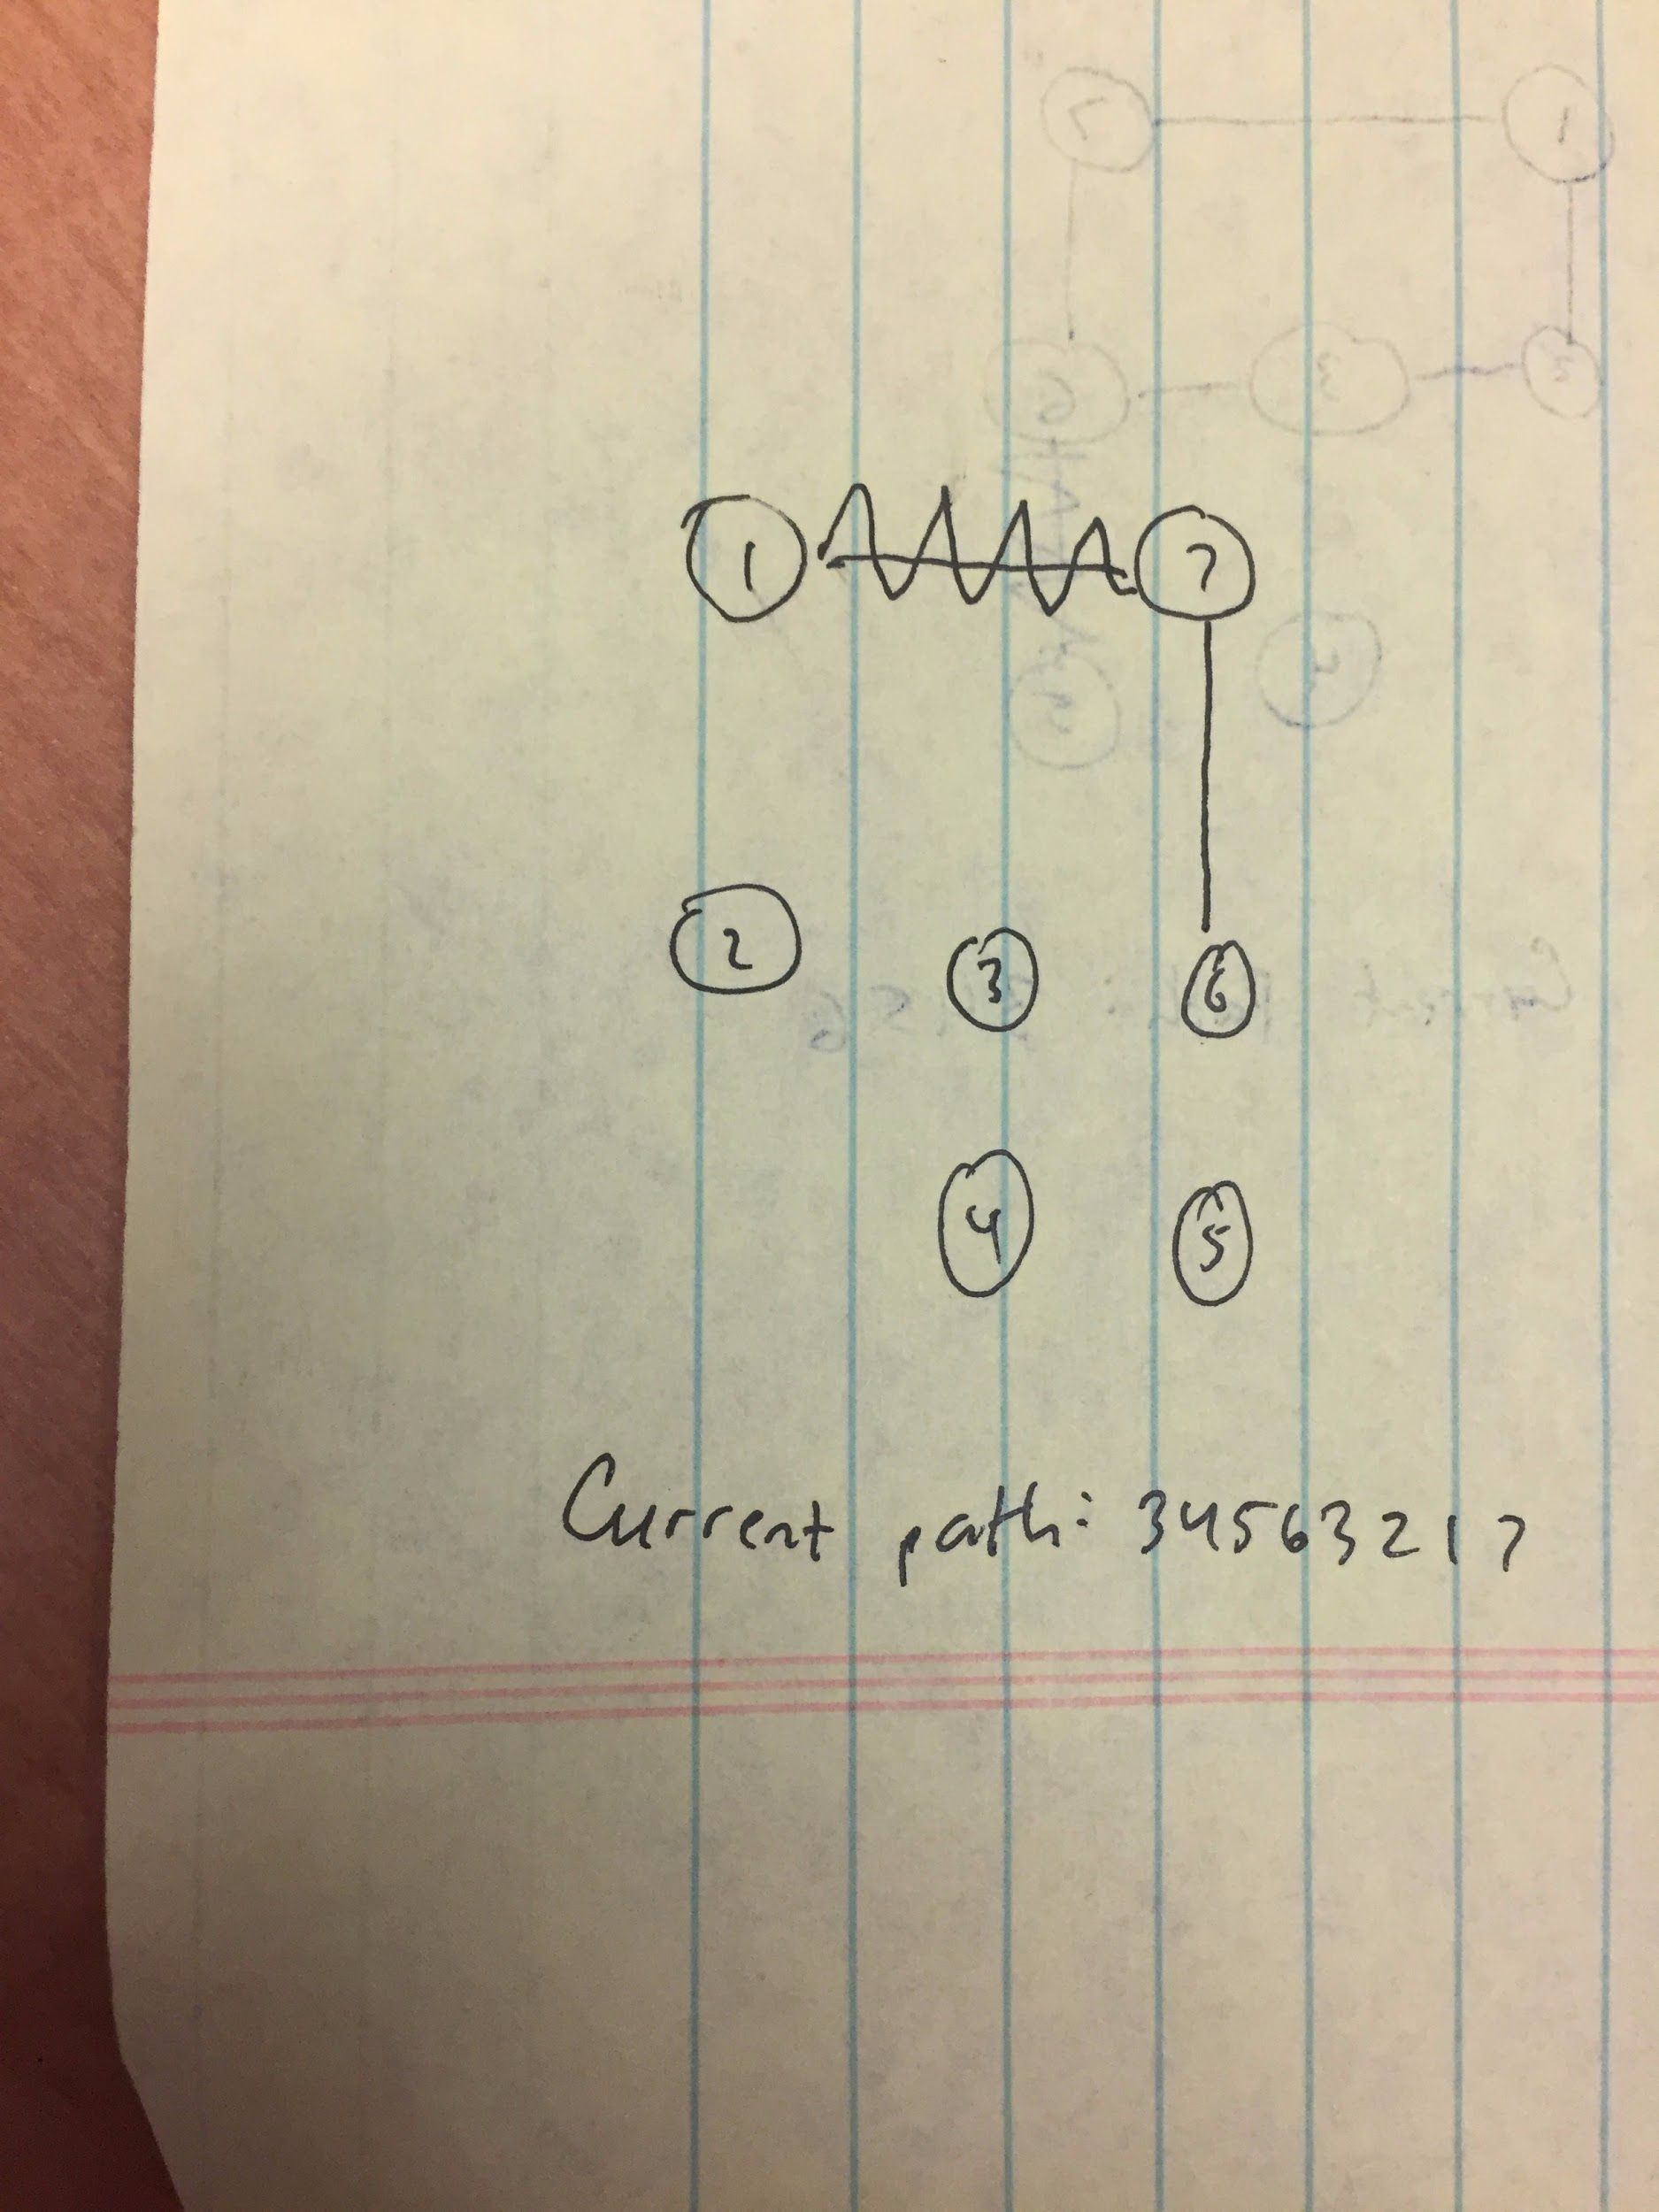 1 7
2 3 6
4 5
Current path: 34563217